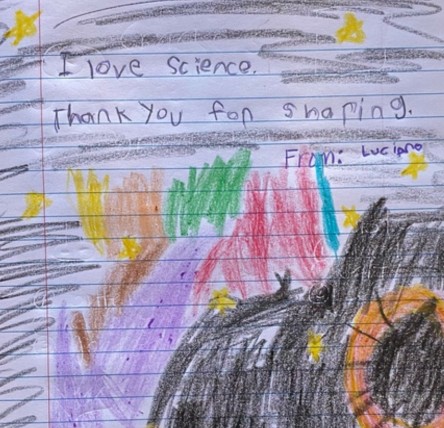 I love science.
Thank you for shaping.
From: Luciano